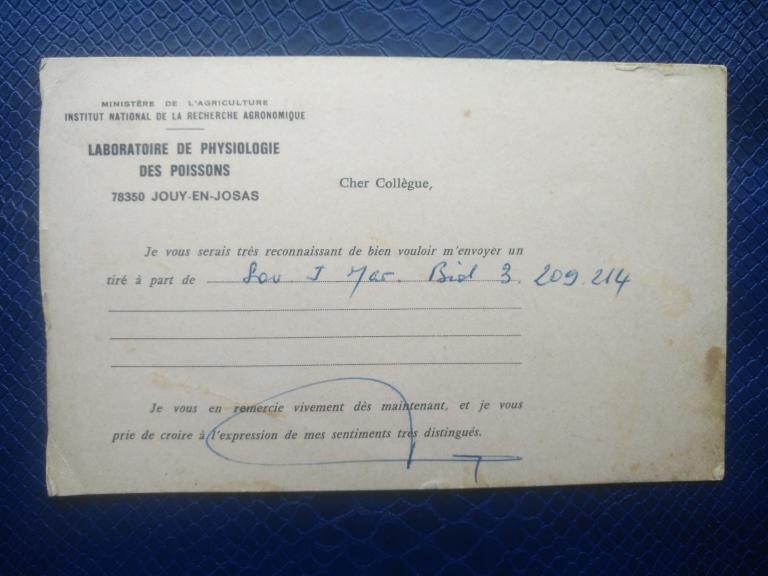 MINISTÈRE DE L'AGRICULTURE
INSTITUT NATIONAL DE LA RECHERCHE AGRONOMIQUE
LABORATOIRE DE PHYSIOLOGIE
DES POISSONS
78350 JOUY-EN-JOSAS
Cher Collègue,
Je vous serais très reconnaissant de bien vouloir m'envoyer un
tiré à part de Sov J Mar. Biol 3. 209.214
Je vous en remercie vivement dès maintenant, et je vous
prie de croire à l'expression de mes sentiments très distingués.